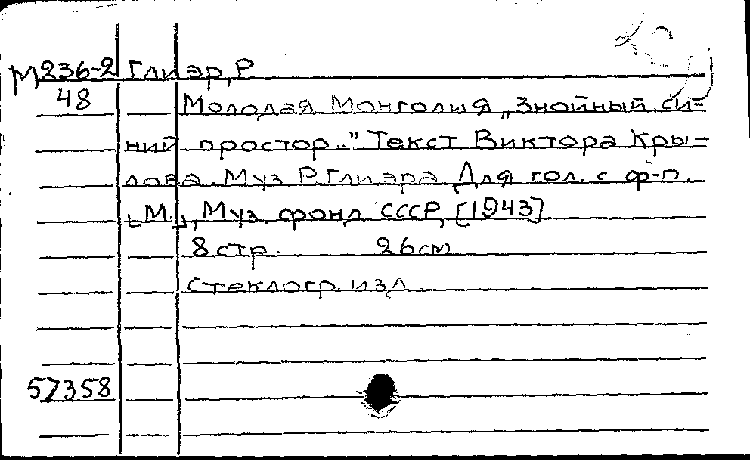 М236-2 Глиэр, Р
48 Молодая Монголия „Знойный си-
ний простор..." Текст Виктора Кры-
лова. Муз Р.Глиэра Для гол. с ф-п.
[М.], Муз. фонд СССР, [1943]
8 стр. 26 см
Стеклогр. изд.
57358